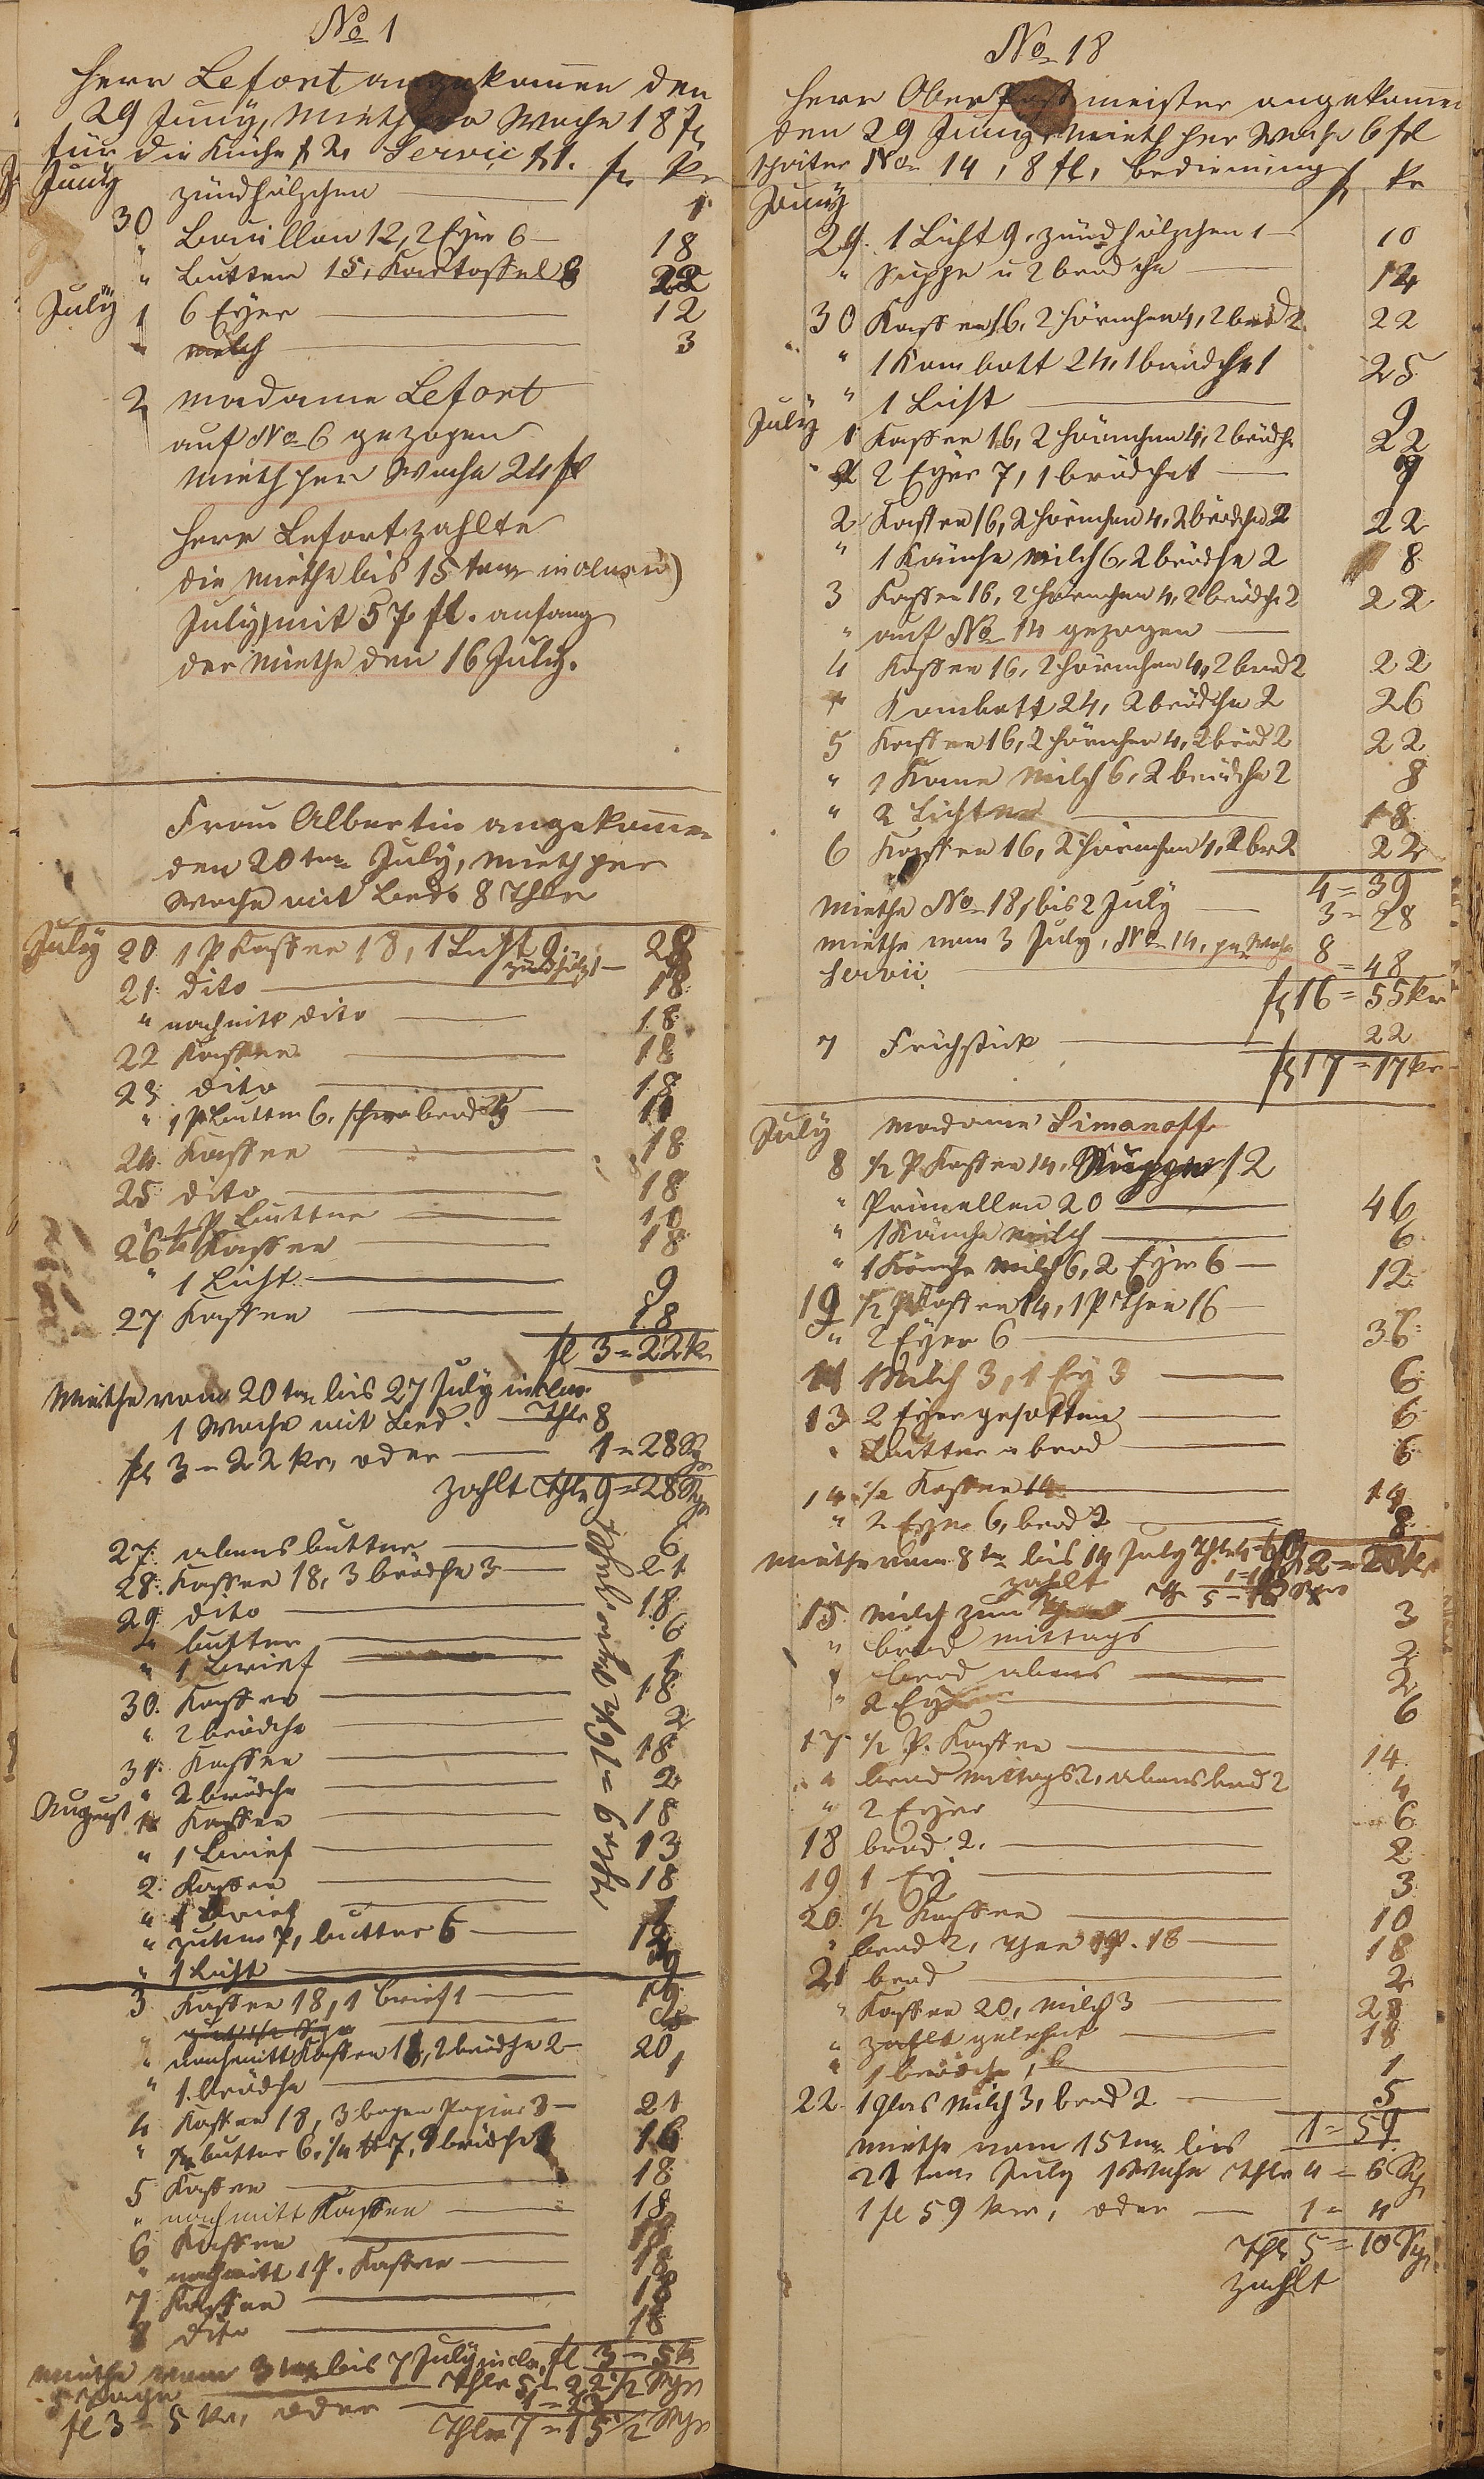 No 1
Herr Lefort angekommen den
29 Juny, Mieth pr Woche 18 fl
für die Küche fl 2 Servic fl 1. fl kr
Juny zündhölzchen 1
30 Bouillon 12, 2 Eyer 6 18
" Butter 15, Kartoffel 22
July 1 6 Eyer 12
" milch 3
2 madame Lefort
auf No 6 gezogen
Mieth per Woche 24 fl
Herr Lefort zahlte
die Miethe bis 15 ten inclusiv
July mit 57 fl. anfang
der Miethe den 16 July.
Frau Albertin angekommen
den 20 ten July, Mieth per
Woche mit Bed. 8 Thlr
July 20 1 P Kaffee 18, 1 Licht 9. 28
zündhölz 1
21 dito 18
" nachmitt dito 18
22 Kaffee 18
23 dito 18
" 1 P Butter 6, schwarzbrod 11
24 Kaffee 18
25 dito 18
" 1 P Butter 10
26 Kaffee 18
" 1 Licht 9
27 Kaffee 18
fl 3 = 22 kr
Miethe vom 20 ten bis 27 July inclus.
1 Woche mit Bed. Thlr 8
fl 3 = 22 kr, oder 1 = 28 Sgr
zahlt Thlr 9 = 28 Sgr
27. abens butter 6
28. Kaffee 18, 3 brödche 3 21
29 dito 18
" butter 6
" 1 Brief 1
30. Kaffee 18
" 2 brödche 2
31. Kaffee 18
" 2 brödche 2
August 1 Kaffee 18
" 1 Brief 13
2. Kaffee 18
" 1 Brief 1
" butter 6
" 1 Licht 9
3 Kaffee 18, 1 Brief 1 19
" nachmitt Kaffee 18, 2 brödche 2 20
" 1 brödche 1
4 Kaffee 18, 3 bogen Papier 3 21
" butter 6, 16
5 Kaffee 18
" nachmitt Kaffee 18
6 Kaffee 18
" nachmitt 1 P. Kaffee 18
7 Kaffee 18
8 dito 18
Miethe vom 3 ten bis 7 July inclu. fl 3 = 5 kr
5 Tage Thlr 5 = 22 1/2 Sgr
fl 3 = 5 kr, oder
Thlr 7 = 15 1/2 Sgr
No 18
Herr Ober Postmeister angekommen
den 29 Juny, Mieth per Woche 6 fl
später No 14, 8 fl, bedienung fl kr
Juny
29. 1 Licht 9, zündhölzchen 1 10
" Suppe u 2 brodche 14
30 Kaffee 16, 2 hörnchen 4, 2 bröd 2 22
" 1 Kombott 24, 1 brödche 1 25
" 1 Licht 9
July 1 Kaffee 16, 2 hörnchen 4, 2 brödche 22
2 Eyer 7, 1 brödche
2 Kaffee 16, 2 hörnchen 4, 2 brödche 2 22
" 1 Känche Milch 6, 2 brödche 2 8
3 Kaffee 16, 2 hörnchen 4, 2 brödche 2 22
" auf No 14 gezogen
4 Kaffee 16, 2 hörnchen 4, 2 brod 2 22
" Kombott 24, 2 brödche 2 26
5 Kaffee 16, 2 hörnchen 4, 2 bröd 2 22
" 1 Kane Milch 6, 2 brödche 2 8
" 2 Lichter 18
6 Kaffee 16, 2 hörnchen 4, 2 br 2 22
4 = 39
Miethe No 18, bis 2 July 3 = 28
Miethe vom 3 July, No 14, per Woche 8
Servic. 48
fl 16 = 55 kr
7 Frühstück 22
fl 17 = 17 kr
July madame Simanoff
8 1/2 P. Kaffee 14, Suppe 12
" Prünellen 20 46
" 1 Känche milch 6
" 1 Känche Milch 6, 2 Eyer 6 12
1/2 P Kaffee 14, 1 P Thee 16
" 2 Eyer 6 36
11 Milch 3, 1 Ey 3 6
13 2 Eyer gesotten 6
" Butter u brod 6
14 1/2 Kaffee 14 14
" 2 Eyer 6, brod 2 8
Miethe vom 8 ten bis 14 July Thlr 4 = 6 fl 2 = 20 kr
zahlt
15 Milch zum Thee 3
" brod mittags 2
" brod abens 2
" 2 Eyer 6
17 1/2 P. Kaffee 14
" brod mittags 2, abens brod 2 4
" 2 Eyer 6
18 brod 2. 2
19 1 Ey 3
20 1/2 Kaffee 10
" brod 2, Thee 1 P. 18 18
21 brod 2
" Kaffee 20, Milch 3 23
" 18
" 1 brödche 1
22 1 glas Milch 3, brod 2 5
1 = 59
Miethe vom 15 ten bis
21 ten July 1 Woche Thlr 4 = 6 Sgr
1 fl 59 kr, oder 1 = 4
Thlr 5 = 10 Sgr
zahlt